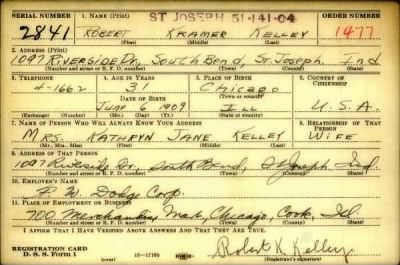 SERIAL NUMBER 1. NAME (Print) ST JOSEPH 51-141-04 ORDER NUMBER
2841 ROBERT KRAMER KELLEY 1477
(First) (Middle) (Last)
2. ADDRESS (Print)
1097 RIVERSIDE Dr, SOUTH Bend, St. Joseph. Ind.
(Number and street or R. F. D. number) (Town) (County) (State)
3. TELEPHONE 4. AGE IN YEARS 5. PLACE OF BIRTH 6. COUNTRY OF CITIZENSHIP
4-1662 31 CHICAGO
DATE OF BIRTH (Town or county)
JUNE 6 1909 ILL U.S.A.
(Exchange) (Number) (Mo.) (Day) (Yr.) (State or country)
7. NAME OF PERSON WHO WILL ALWAYS KNOW YOUR ADDRESS 8. RELATIONSHIP OF THAT PERSON
MRS. KATHRYN JANE KELLEY WIFE
(Mr., Mrs., Miss) (First) (Middle) (Last)
9. ADDRESS OF THAT PERSON
1097 Riverside Dr. South Bend, St Joseph Ind.
(Number and street or R. F. D. number) (Town) (County) (State)
10. EMPLOYER'S NAME
F. W. Dodge Corp.
11. PLACE OF EMPLOYMENT OR BUSINESS
700, Merchandise Mart, Chicago, Cook,
(Number and street or R. F. D. number) (Town) (County) (State)
I AFFIRM THAT I HAVE VERIFIED ABOVE ANSWERS AND THAT THEY ARE TRUE.
REGISTRATION CARD
D. S. S. Form 1 16—17105 Robert K Kelley
(Registrant's signature)